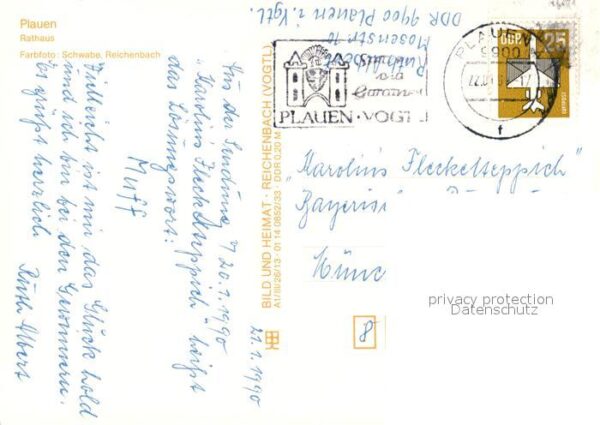 Plauen
Rathaus
Farbfoto: Schwabe, Reichenbach
21.1.1990
Aus der Sendung v. 20.1.1990
"Karolius Fleckelteppich" heißt
das Lösungswort:
Muff
Vielleicht ist mir das Glück hold
und ich bin bei den Gewinnern.
Es grüßt herzlich
Ruth Albert
BILD UND HEIMAT · REICHENBACH (VOGTL)
A1/III/26/13 · 01 14 0852/33 · DDR 0,20 M
Ruth
Mosenstr. 10
DDR 9900 Plauen i. Vgtl.
PLAUEN · VOGTL
PLAUEN
9900
DDR 25
LUFTPOST
"Karolius Fleckelteppich"
Bayeris
Münc
8
privacy protection
Datenschutz